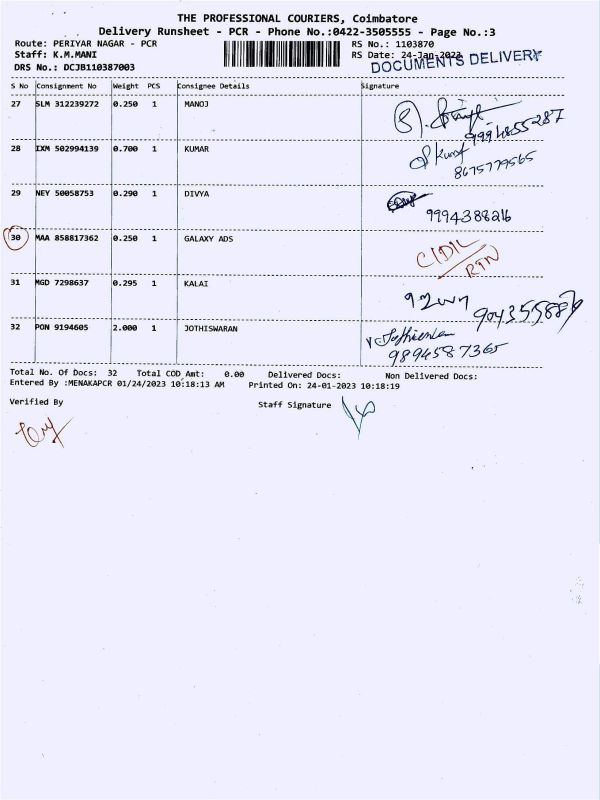 THE PROFESSIONAL COURIERS, Coimbatore
Delivery Runsheet - PCR - Phone No.:0422-3505555 - Page No.:3
Route: PERIYAR NAGAR - PCR RS No.: 1103870
Staff: K.M.MANI RS Date: 24-Jan-2023
DRS No.: DCJB110387003 DOCUMENTS DELIVERY
S No Consignment No Weight PCS Consignee Details Signature
27 SLM 312239272 0.250 1 MANOJ
9994855287
28 IXM 502994139 0.700 1 KUMAR
8675779565
29 NEY 50058753 0.290 1 DIVYA
9994388216
30 MAA 858817362 0.250 1 GALAXY ADS
C/D/L
RTN
31 MGD 7298637 0.295 1 KALAI
32 PON 9194605 2.000 1 JOTHISWARAN
9894587365
Total No. Of Docs: 32 Total COD Amt: 0.00 Delivered Docs: Non Delivered Docs:
Entered By :MENAKAPCR 01/24/2023 10:18:13 AM Printed On: 24-01-2023 10:18:19
Verified By Staff Signature